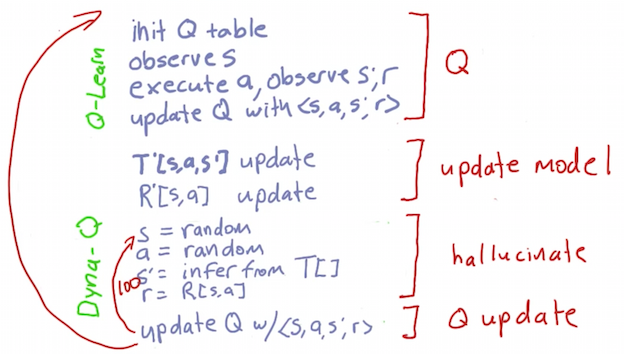 Q-Learn
init Q table
observe s
execute a, observe s', r
update Q with <s, a, s', r>
Q
T'[s,a,s'] update
R'[s,a] update
update model
Dyna-Q
s = random
a = random
s' = infer from T[]
r = R[s,a]
100
hallucinate
update Q w/ <s, a, s', r>
Q update